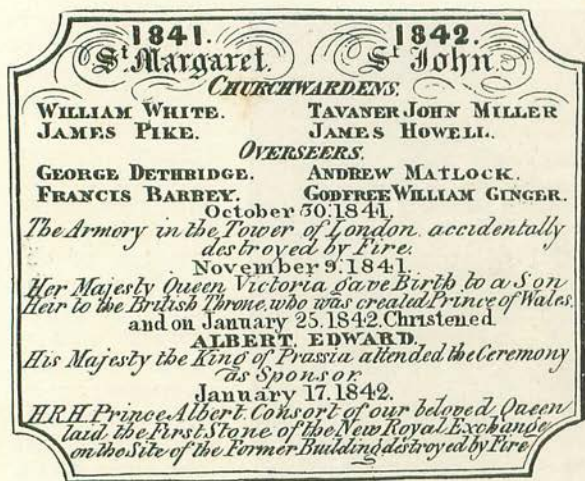 1841. 1842.
St Margaret. St John.
CHURCHWARDENS.
WILLIAM WHITE. TAVANER JOHN MILLER
JAMES PIKE. JAMES HOWELL.
OVERSEERS.
GEORGE DETHRIDGE. ANDREW MATLOCK.
FRANCIS BARBEY. GODFREE WILLIAM GINGER.
October 30. 1841.
The Armory in the Tower of London accidentally
destroyed by Fire.
November 9. 1841.
Her Majesty Queen Victoria gave Birth to a Son
Heir to the British Throne, who was created Prince of Wales,
and on January 25. 1842. Christened
ALBERT, EDWARD.
His Majesty the King of Prassia attended the Ceremony
as Sponsor.
January 17. 1842.
H.R.H. Prince Albert, Consort of our beloved Queen
laid the First Stone of the New Royal Exchange
on the Site of the Former Building destroyed by Fire